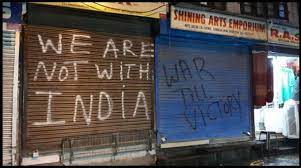 SHINING ARTS EMPORIUM
R.A.S
WE ARE
NOT WITH
INDIA
WAR
TILL
VICTORY